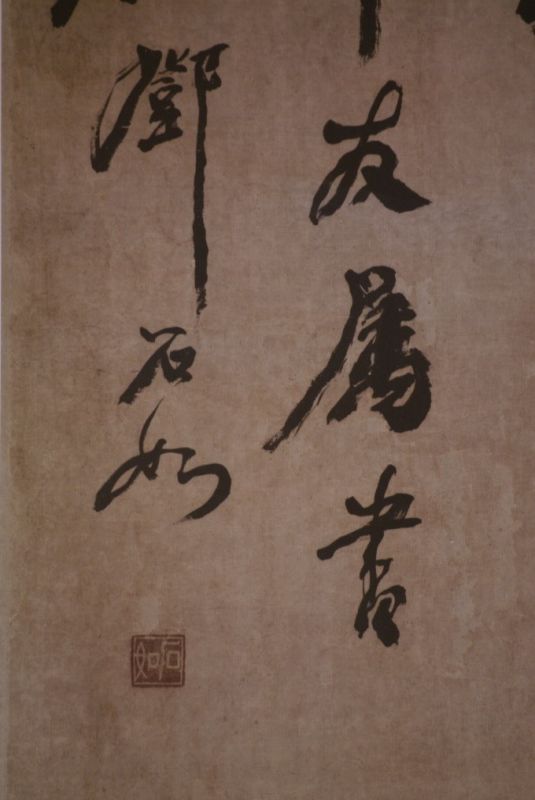 友属書
鄧石如
石如